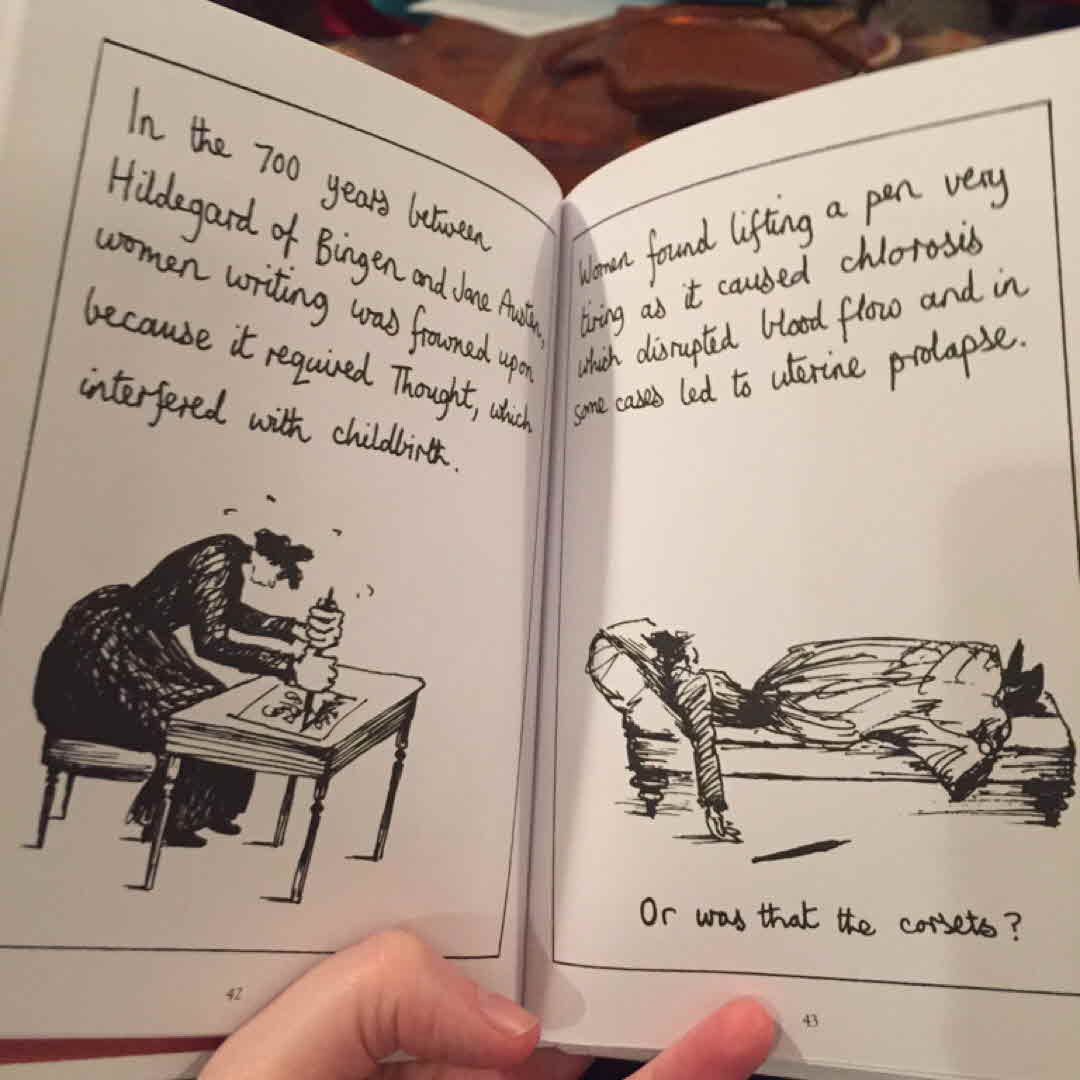 In the 700 years between
Hildegard of Bingen and Jane Austen,
women writing was frowned upon
because it required Thought, which
interfered with childbirth.
42
Women found lifting a pen very
tiring as it caused chlorosis
which disrupted blood flow and in
some cases led to uterine prolapse.
Or was that the corsets?
43